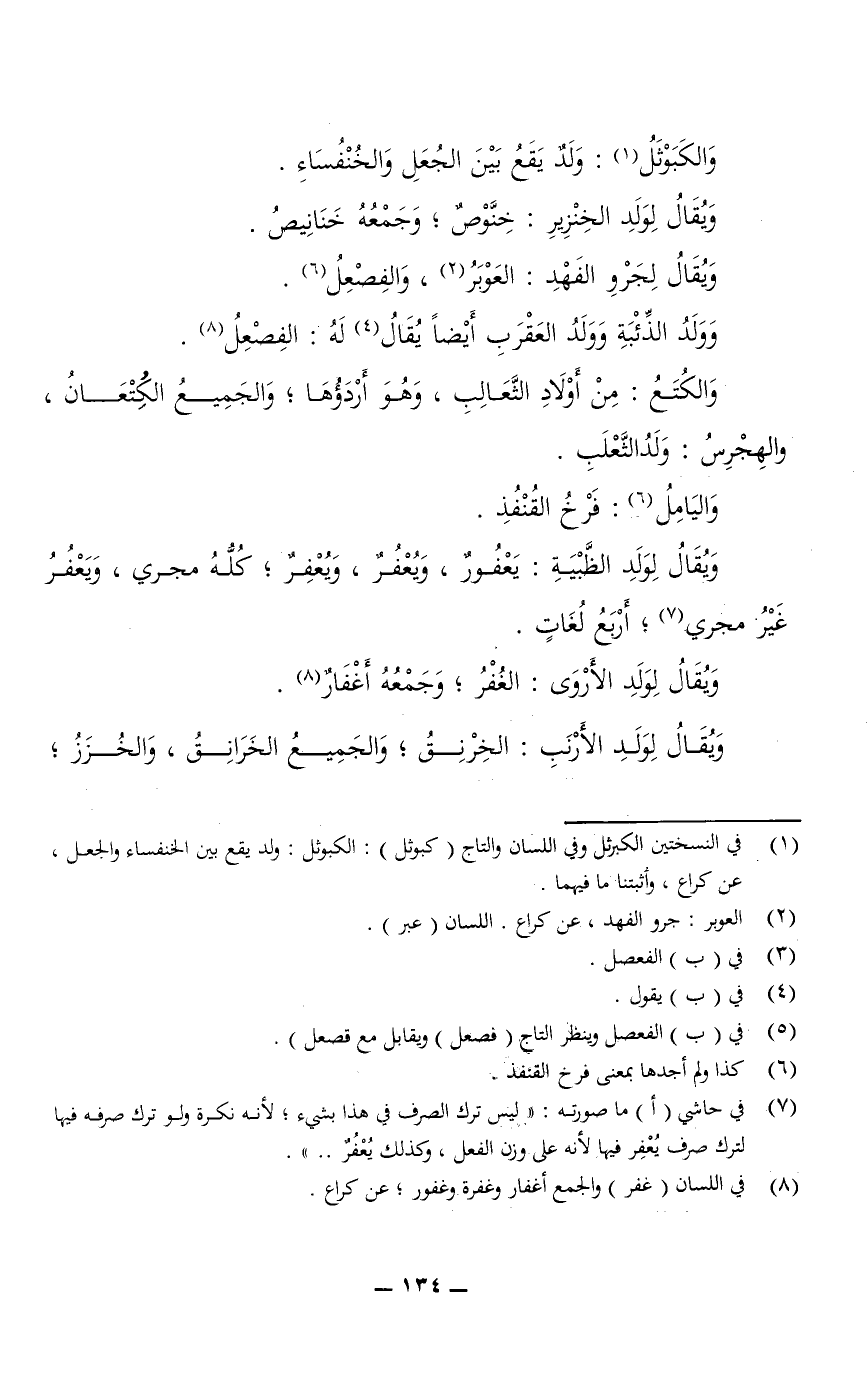 وَالكَبَوْثَلُ(١) : وَلَدٌ يَقَعُ بَيْنَ الجُعَلِ وَالخُنْفُسَاءِ .
وَيُقَالُ لِوَلَدِ الخِنْزِيرِ : خِنَّوْصٌ ؛ وَجَمْعُهُ خَنَانِيصُ .
وَيُقَالُ لِجَرْوِ الفَهْدِ : العَوْبَرُ(٢) ، وَالفِصْعِلُ(٦) .
وَوَلَدُ الذِّئْبَةِ وَوَلَدُ العَقْرَبِ أَيْضاً يُقَالُ(٤) لَهُ : الفِصْعِلُ(٨) .
وَالكُتَعُ : مِنْ أَوْلَادِ الثَّعَالِبِ ، وَهُوَ أَرْدَؤُهَا ؛ وَالجَمِيعُ الكُِتْعَانُ ،
والهِجْرِسُ : وَلَدُالثَّعْلَبِ .
وَاليَامِلُ(٦) : فَرْخُ القُنْفُذِ .
وَيُقَالُ لِوَلَدِ الظَّبْيَةِ : يَعْفُورٌ ، وَيُعْفُرٌ ، وَيُعْفِرٌ ؛ كُلُّهُ مجري ، وَيَعْفُرُ
غَيْرُ مجري(٧) ؛ أَرْبَعُ لُغَاتٍ .
وَيُقَالُ لِوَلَدِ الأَرْوَى : الغُفْرُ ؛ وَجَمْعُهُ أَغْفَارٌ(٨) .
وَيُقَالُ لِوَلَدِ الأَرْنَبِ : الخِرْنِقُ ؛ وَالجَمِيعُ الخَرَانِقُ ، وَالخُزَزُ ؛
(١) في النسختين الكبرثل وفي اللسان والتاج ( كبوثل ) : الكبوثل : ولد يقع بين الخنفساء والجعل ،
عن كراع ، وأثبتنا ما فيهما .
(٢) العوبر : جرو الفهد ، عن كراع . اللسان ( عبر ) .
(٣) في ( ب ) الفعصل .
(٤) في ( ب ) يقول .
(٥) في ( ب ) الفعصل وينظر التاج ( فصعل ) ويقابل مع قصعل ) .
(٦) كذا ولم أجدها بمعنى فرخ القنفذ .
(٧) في حاشي ( أ ) ما صورته : « ليس ترك الصرف في هذا بشيء ؛ لأنه نكرة ولو ترك صرفه فيها
لترك صرف يُعْفِر فيها لأنه على وزن الفعل ، وكذلك يُعْفُرٌ .. » .
(٨) في اللسان ( غفر ) والجمع أغفار وغفرة وغفور ؛ عن كراع .
— ١٣٤ —